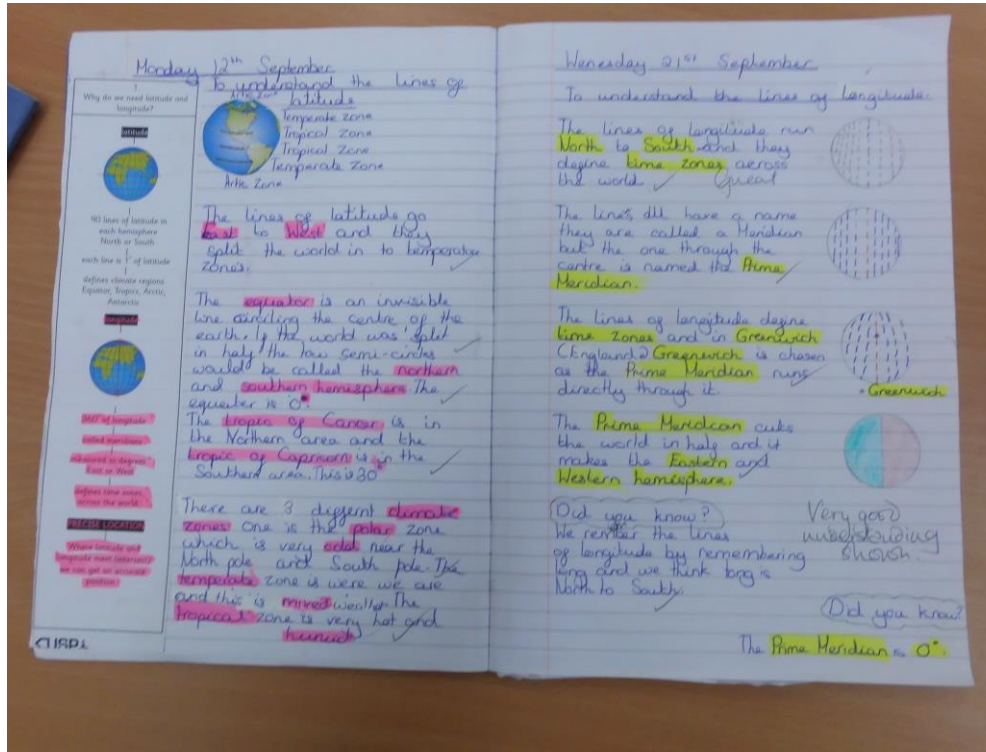 Monday 12th September
To understand the lines of
latitude
1
Why do we need latitude and
longitude?
latitude
90 lines of latitude in
each hemisphere
North or South
each line is 1° of latitude
defines climate regions
Equator, Tropics, Arctic,
Antarctic
longitude
360° of longitude
called meridians
measured in degrees
East or West
defines time zones
across the world
PRECISE LOCATION
Where latitude and
longitude meet (intersect)
we can get an accurate
position
CUSP
Artic Zone
Temperate Zone
Tropical Zone
Tropical Zone
Temperate Zone
Artic Zone
The lines of latitude go
East to West and they
split the world in to temperative
zones.
The equator is an invisible
line circling the centre of the
earth. If the world was split
in half the tow semi-circles
would be called the northern
and southern hemisphere. The
equater is 0°.
The tropic of Cancer is in
the Northern area and the
tropic of Capricorn is in the
Southern area. This is 30°
There are 3 different climate
zones One is the polar zone
which is very cold near the
North pole and South pole. The
temperate zone is were we are
and this is mixed weather. The
tropical zone is very hot and
humid
Wenesday 21st September
To understand the lines of longitude.
The lines of longitude run
North to South and they
define time zones across
the world Great
The lines all have a name
they are called a Meridian
but the one through the
centre is named the Prime
Meridian.
The lines of longitude define
time zones and in Greenwich
(England) Greenwich is chosen
as the Prime Meridian runs
directly through it.
Greenwich
The Prime Meridian cuts
the world in half and it
makes the Eastern and
Western hemisphere.
Did you know?
We rember the lines
of longitude by remembering
long and we think long is
North to South.
Very good
understanding
shown.
Did you know?
The Prime Meridian is 0°.